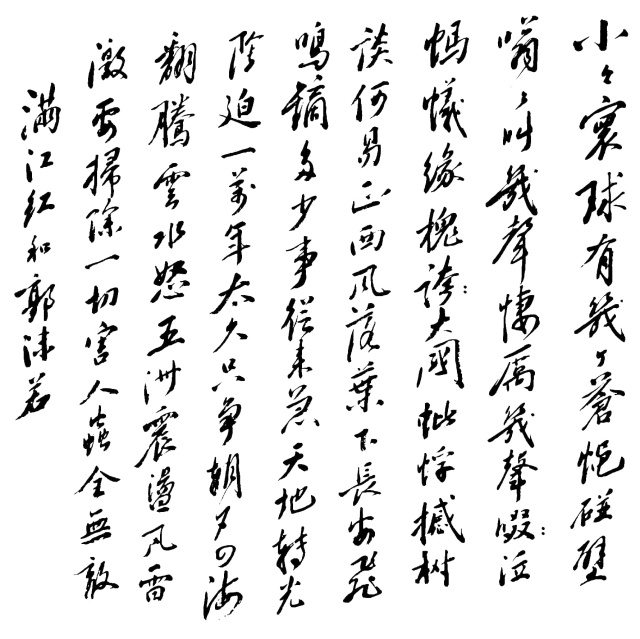 小々寰球有幾个蒼蝇碰壁
嗡々叫幾聲悽厲幾聲啜泣
螞蟻緣槐誇大國蚍蜉撼树
談何易正西风落葉下長安飛
鳴鏑多少事從来急天地轉光
陰迫一萬年太久只争朝夕四海
翻騰雲水怒五洲震盪风雷
激要掃除一切害人蟲全無敵
满江红和郭沫若